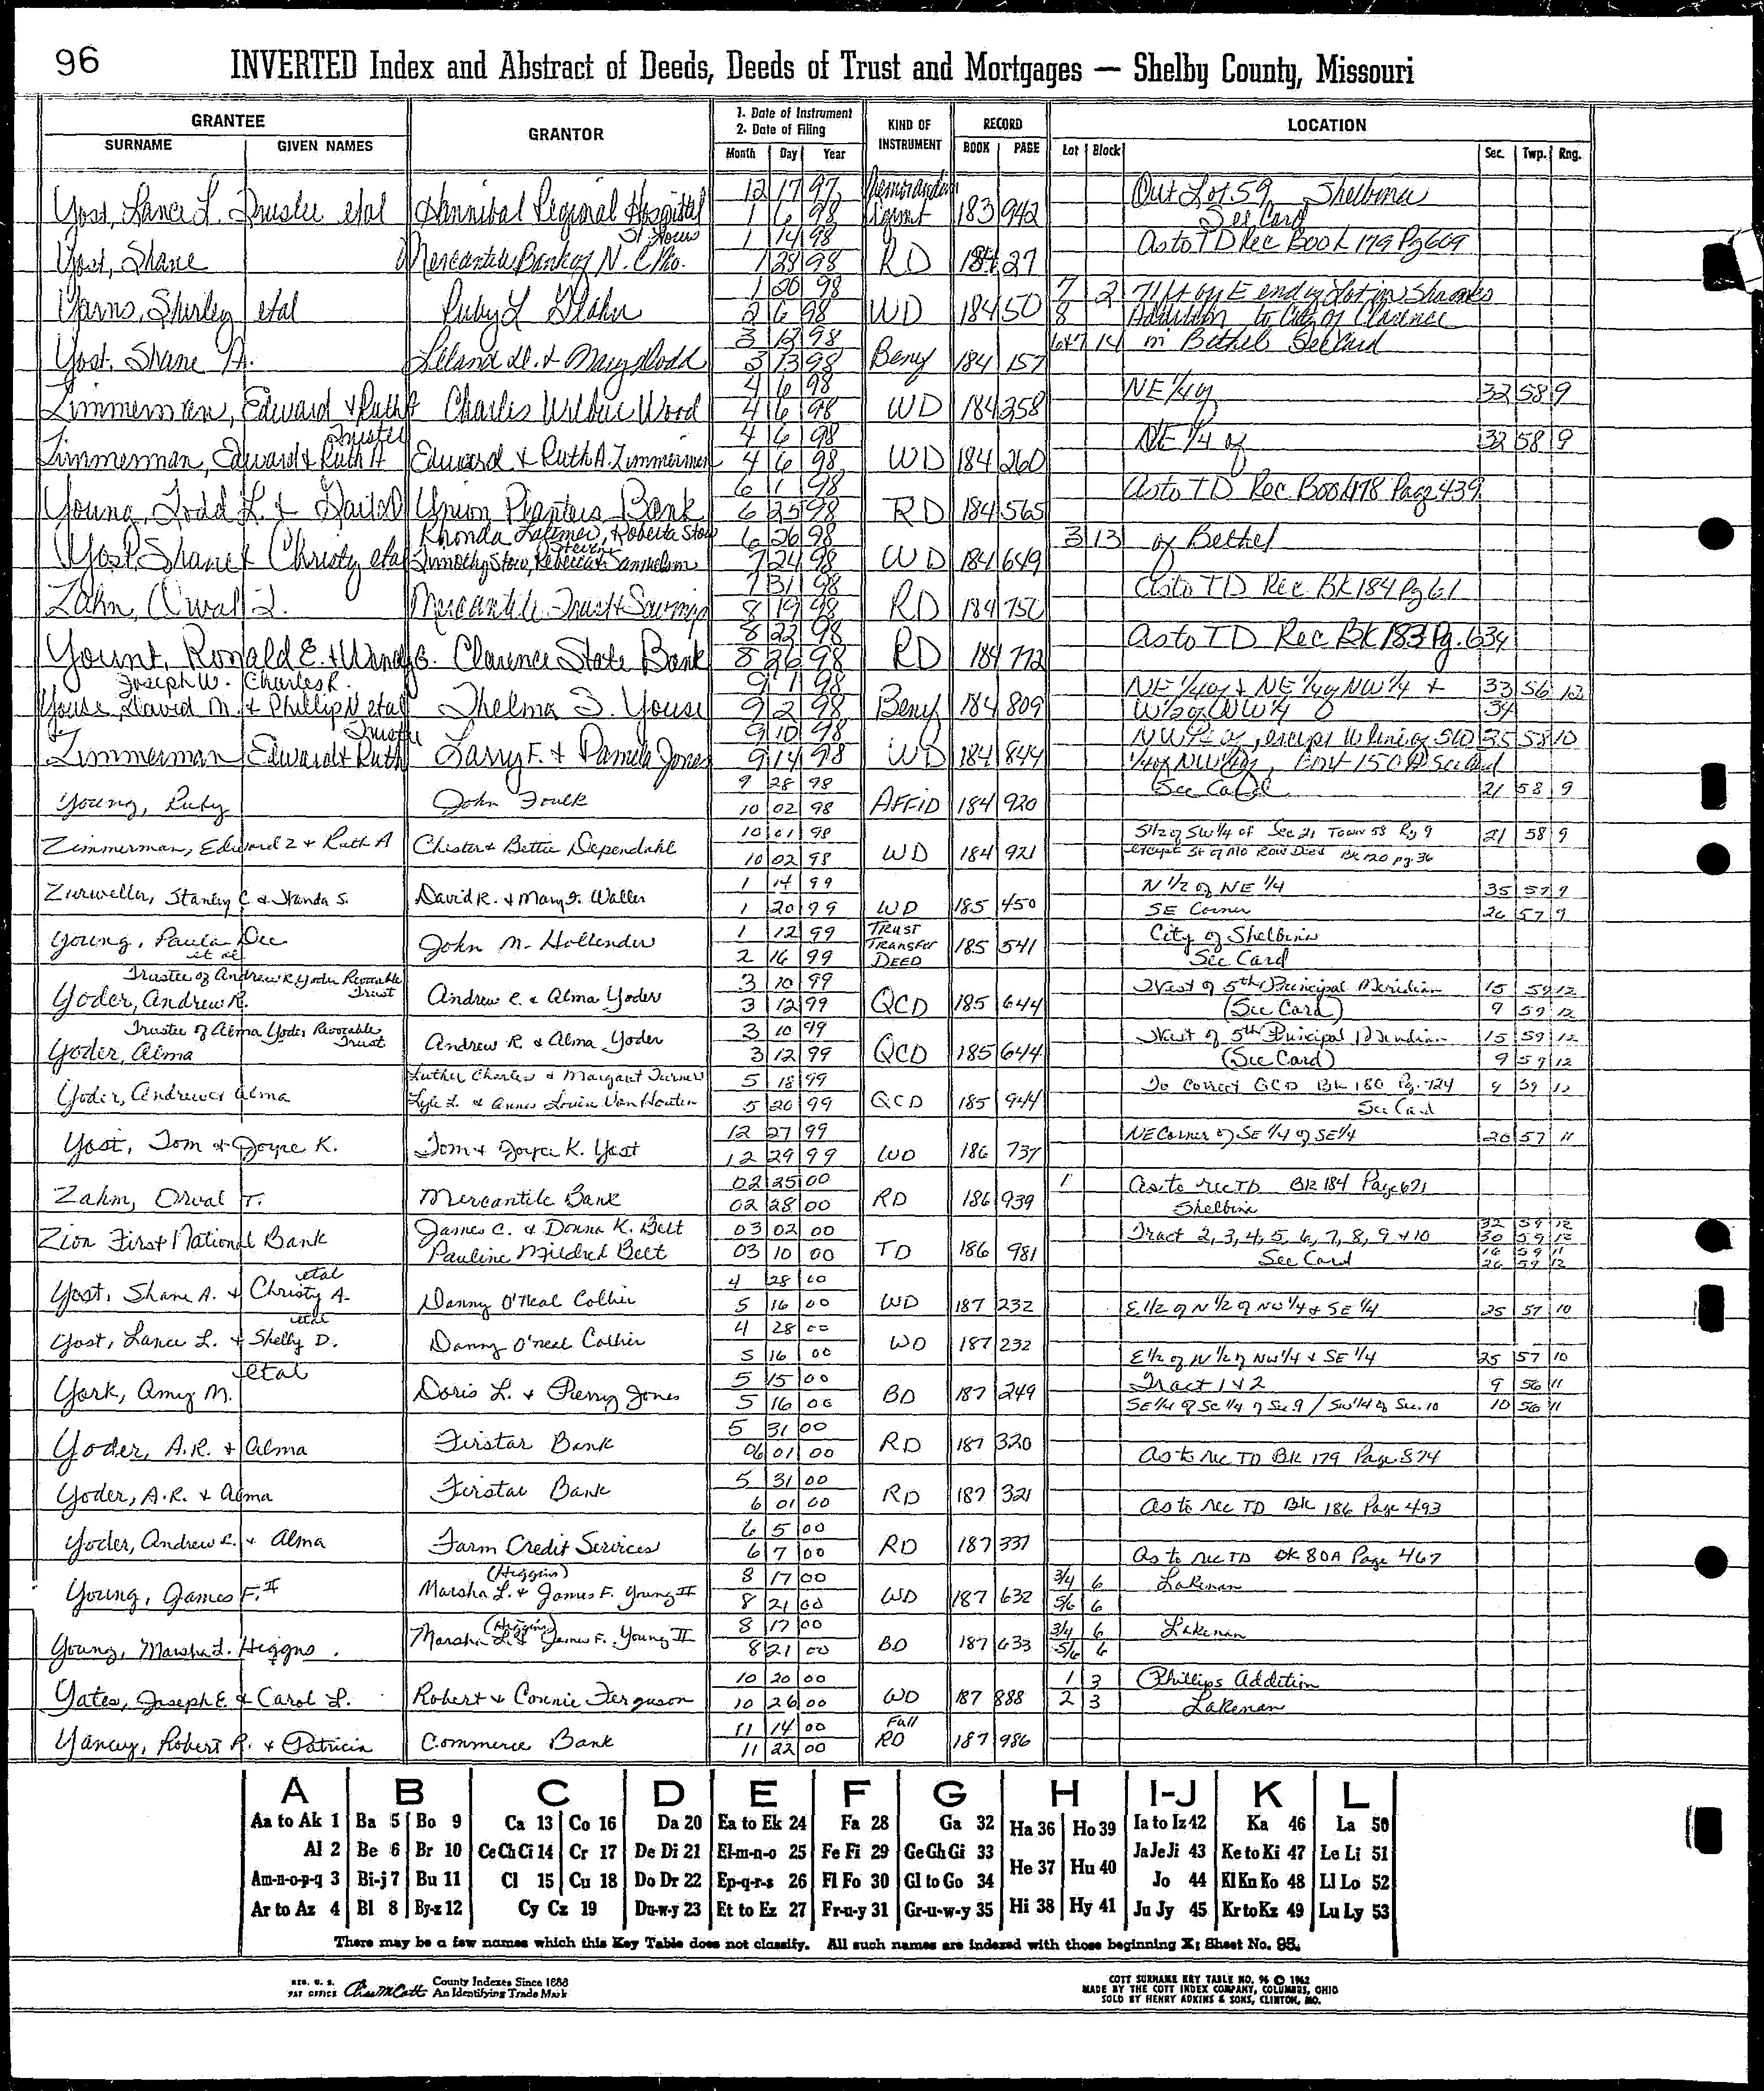 96 INVERTED Index and Abstract of Deeds, Deeds of Trust and Mortgages — Shelby County, Missouri
GRANTEE GRANTOR 1. Date of Instrument 2. Date of Filing KIND OF INSTRUMENT RECORD LOCATION
SURNAME GIVEN NAMES Month Day Year BOOK PAGE Lot Block Sec. Twp. Rng.
Yost, Lance L. Trustee etal Hannibal Regional Hospital 12 17 97 1 6 98 183 942 Out Lot 59 Shelbina See Card
Yost, Shane Mercantile Bank of N. C. Mo. 1 14 98 1 28 98 RD 184 27 As to TD Rec Book 179 Pg 609
Shirley etal Ruby L 1 20 98 2 6 98 WD 184 50 7 8 2 71 ft on E end of Lot in Addition to City of Clarence
Yost, Shane A. Leland & Mary Dodd 3 12 98 3 13 98 184 157 6&7 14 in Bethel See Card
Zimmerman, Edward & Ruth A Charles Wilbur Wood 4 6 98 4 6 98 WD 184 258 NE 1/4 of 32 58 9
Zimmerman, Edward & Ruth A Trustee Edward & Ruth A. Zimmerman 4 6 98 4 6 98 WD 184 260 NE 1/4 of 32 58 9
Young, Todd L. & Union Planters Bank 6 1 98 6 25 98 RD 184 565 As to TD Rec Book 178 Page 439
Yost, Shane & Christy etal Rhonda Latimer, Roberta Stow Timothy Stow, Rebecca & Steven Samuelson 6 26 98 7 24 98 WD 184 649 3 13 of Bethel
Zahn, Orval T. Mercantile Trust & Savings 7 31 98 8 19 98 RD 184 750 As to TD Rec. BK 184 Pg 61
Yount, Ronald E. & Wendy G. Clarence State Bank 8 22 98 8 26 98 RD 184 772 As to TD Rec Bk 183 Pg. 634
Joseph W. Charles R.
Youse, David M. & Phillip N etal Thelma I. Youse 9 1 98 9 2 98 184 809 NE 1/4 of & NE 1/4 of NW 1/4 & W 1/2 of NW 1/4 33 56 12 34
Zimmerman Edward & Ruth Trustee Larry F. & Pamela Jones 9 10 98 9 14 98 WD 184 844 35 58 10
Young, Ruby John Foulk 9 28 98 10 02 98 AFFID 184 920 See Card 21 58 9
Zimmerman, Edward Z & Ruth A Chester & Bettie Dependahl 10 01 98 10 02 98 WD 184 921 S 1/2 of SW 1/4 of Sec 21 Town 58 Rg 9 except St of MO Row Deed Bk 120 pg 36 21 58 9
Zurweller, Stanley C & Wanda S. David R. & Mary F. Waller 1 14 99 1 20 99 WD 185 450 N 1/2 of NE 1/4 35 57 9 SE Corner 26 57 9
Young, Paula Dee et al John M. Hollender 1 12 99 2 16 99 TRUST TRANSFER DEED 185 541 City of Shelbina See Card
Trustee of Andrew R Yoder Revocable Trust
Yoder, Andrew R. Andrew R. & Alma Yoder 3 10 99 3 12 99 QCD 185 644 West of 5th Principal Meridian (See Card) 15 59 12 9 59 12
Trustee of Alma Yoder Revocable Trust
Yoder, Alma Andrew R. & Alma Yoder 3 10 99 3 12 99 QCD 185 644 West of 5th Principal Meridian (See Card) 15 59 12 9 59 12
Yoder, Andrew & Alma Luther Charles & Margaret Turner Lyle L. & Anna Louise Van Houten 5 18 99 5 20 99 QCD 185 944 To Correct QCD Bk 180 Pg. 724 See Card 9 59 12
Yost, Tom & Joyce K. Tom & Joyce K. Yost 12 27 99 12 29 99 WD 186 737 NE Corner of SE 1/4 of SE 1/4 20 57 11
Zahn, Orval T. Mercantile Bank 02 25 00 02 28 00 RD 186 939 1 As to rec TD BK 184 Page 621 Shelbina
Zion First National Bank James C. & Donna K. Belt Pauline Mildred Belt 03 02 00 03 10 00 TD 186 981 Tract 2, 3, 4, 5, 6, 7, 8, 9 & 10 See Card 32 59 12 30 59 12 16 59 11 26 59 12
Yost, Shane A. & Christy A. etal Danny O'Neal Collier 4 28 00 5 16 00 WD 187 232 E 1/2 of N 1/2 of NW 1/4 & SE 1/4 25 57 10
Yost, Lance L. & Shelly D. etal Danny O'neal Collier 4 28 00 5 16 00 WD 187 232 E 1/2 of N 1/2 of NW 1/4 & SE 1/4 25 57 10
York, Amy M. etal Doris L. & Perry Jones 5 15 00 5 16 00 BD 187 249 Tract 1 & 2 9 56 11 SE 1/4 of SE 1/4 of Sec 9 / SW 1/4 of Sec. 10 10 56 11
Yoder, A.R. & Alma Firstar Bank 5 31 00 06 01 00 RD 187 320 As to rec TD BK 179 Page 874
Yoder, A.R. & Alma Firstar Bank 5 31 00 6 01 00 RD 187 321 As to rec TD Bk 186 Page 493
Yoder, Andrew R. & Alma Farm Credit Services 6 5 00 6 7 00 RD 187 337 As to rec TD BK 80A Page 467
Young, James F. II (Higgins) Marsha L. & James F. Young II 8 17 00 8 21 00 WD 187 632 3/4 6 5/6 6 Lakenan
Young, Marsha L. Higgns. Marsha L. (Higgins) & James F. Young II 8 17 00 8 21 00 BD 187 633 3/4 6 5/6 6 Lakenan
Yates, Joseph E. & Carol L. Robert & Connie Ferguson 10 20 00 10 26 00 WD 187 888 1 3 2 3 Phillips Addition Lakenan
Yancey, Robert R. & Patricia Commerce Bank 11 14 00 11 22 00 Full RD 187 986
A B C D E F G H I-J K L
Aa to Ak 1 Ba 5 Bo 9 Ca 13 Co 16 Da 20 Ea to Ek 24 Fa 28 Ga 32 Ha 36 Ho 39 Ia to Iz 42 Ka 46 La 50
Al 2 Be 6 Br 10 Ce Ch Ci 14 Cr 17 De Di 21 El-m-n-o 25 Fe Fi 29 Ge Gh Gi 33 He 37 Hu 40 Ja Je Ji 43 Ke to Ki 47 Le Li 51
Am-n-o-p-q 3 Bi-j 7 Bu 11 Cl 15 Cu 18 Do Dr 22 Ep-q-r-s 26 Fl Fo 30 Gl to Go 34 Jo 44 Kl Kn Ko 48 Ll Lo 52
Ar to Az 4 Bl 8 By-z 12 Cy Cz 19 Du-w-y 23 Et to Ez 27 Fr-u-y 31 Gr-u-w-y 35 Hi 38 Hy 41 Ju Jy 45 Kr to Kz 49 Lu Ly 53
There may be a few names which this Key Table does not classify. All such names are indexed with those beginning X; Sheet No. 95.
REG. U. S. PAT OFFICE County Indexes Since 1888 An Identifying Trade Mark
COTT SURNAME KEY TABLE NO. 96 © 1962
MADE BY THE COTT INDEX COMPANY, COLUMBUS, OHIO
SOLD BY HENRY ADKINS & SONS, CLINTON, MO.